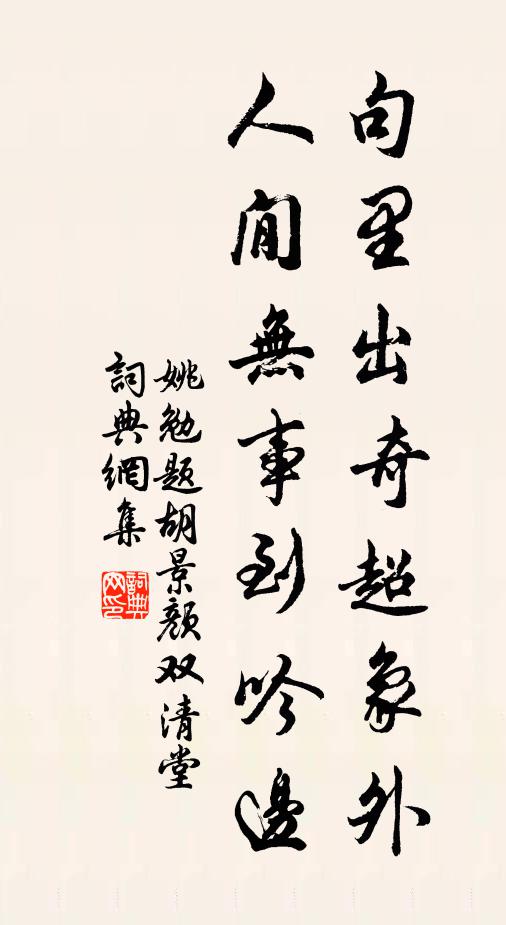 句里出奇超象外
人间無事到吟邊
姚勉题胡景颜双清堂
詞典網集
詞典
网印